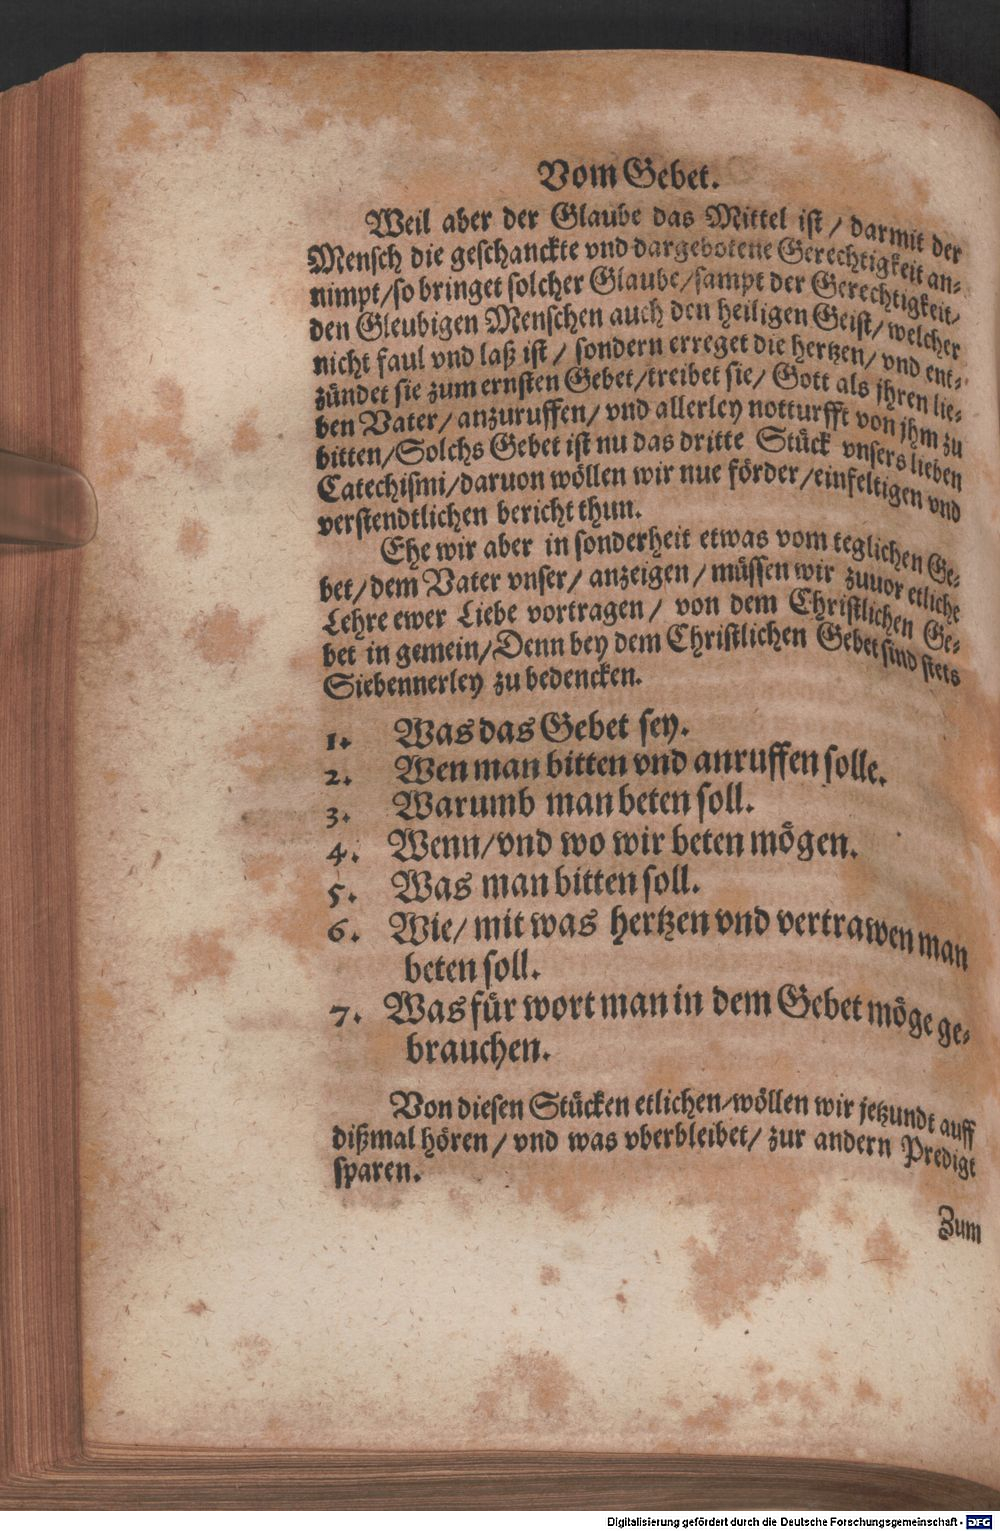 Vom Gebet.
Weil aber der Glaube das Mittel ist / darmit der
Mensch die geschanckte vnd dargebotene Gerechtigkeit an-
nimpt/so bringet solcher Glaube/sampt der Gerechtigkeit/
den Gleubigen Menschen auch den heiligen Geist/welcher
nicht faul vnd laß ist / sondern erreget die hertzen/ vnd ent-
zündet sie zum ernsten Gebet/treibet sie/ Gott als jhren lie-
ben Vater/ anzuruffen/ vnd allerley notturfft von jhm zu
bitten/Solchs Gebet ist nu das dritte Stück vnsers lieben
Catechismi/daruon wöllen wir nue förder/einfeltigen vnd
verstendtlichen bericht thun.
Ehe wir aber in sonderheit etwas vom teglichen Ge-
bet/dem Vater vnser/ anzeigen / müssen wir zuuor etliche
Lehre ewer Liebe vortragen / von dem Christlichen Ge-
bet in gemein/Denn bey dem Christlichen Gebet sind stets
Siebennerley zu bedencken.
1. Was das Gebet sey.
2. Wen man bitten vnd anruffen solle.
3. Warumb man beten soll.
4. Wenn/vnd wo wir beten mögen.
5. Was man bitten soll.
6. Wie/ mit was hertzen vnd vertrawen man
beten soll.
7. Was für wort man in dem Gebet möge ge-
brauchen.
Von diesen Stücken etlichen/wöllen wir jetzundt auff
dißmal hören / vnd was vberbleibet/ zur andern Predigt
sparen.
Zum
Digitalisierung gefördert durch die Deutsche Forschungsgemeinschaft - DFG